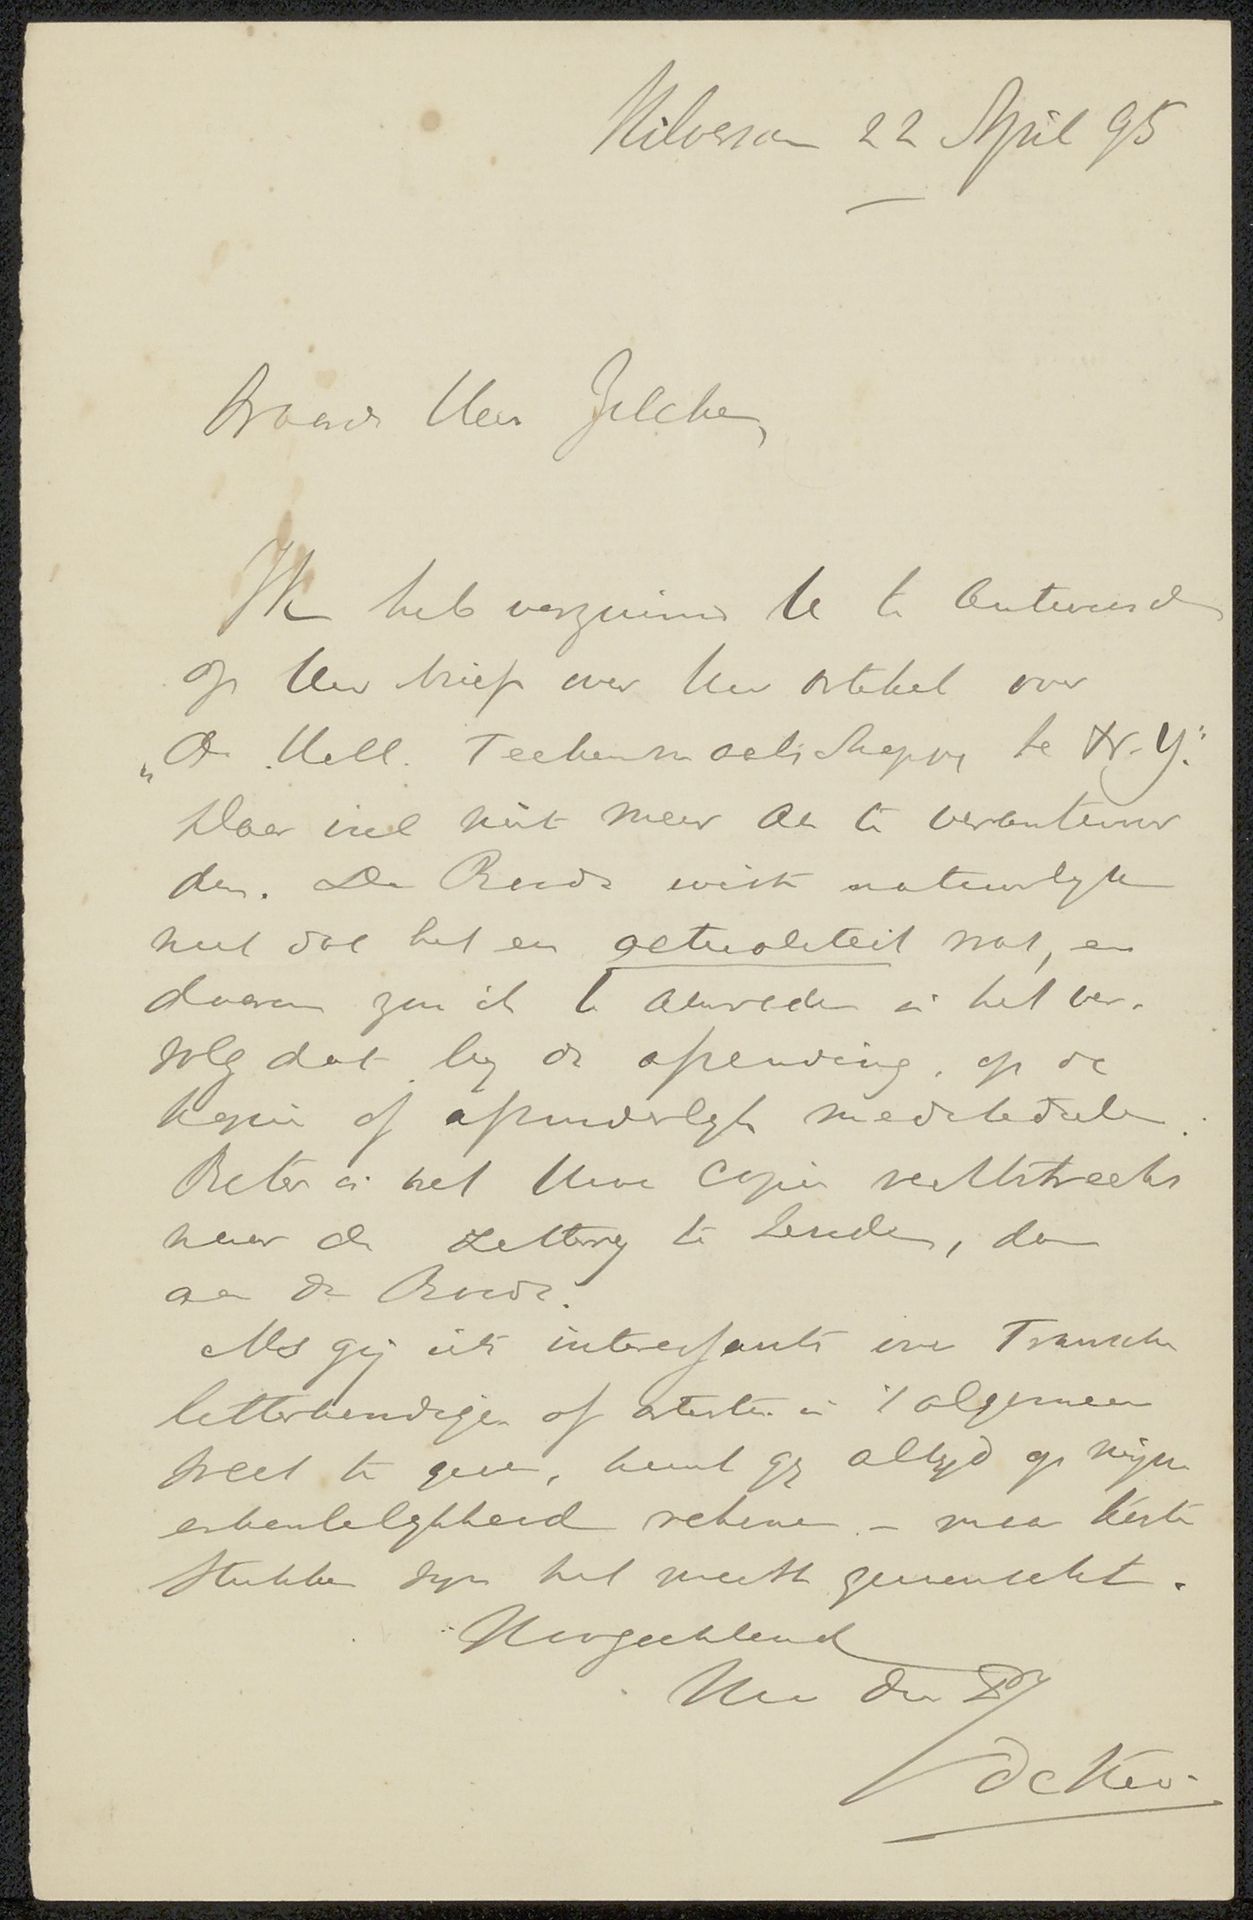 Hilversum 22 April 95
Waarde Heer Zilcken,
Ik heb verzuimd U te antwoorden
op Uw brief over Uw artikel over
„De Holl. Teekenmaatschappij te N.-Y."
Daar viel niet meer aan te verantwoor
den. De Redc wist natuurlijk
niet dat het en actualiteit was, en
daarom zou ik U aanraden in het ver-
volg dat bij de afzending, op de
kopie of afzonderlijk mede te deelen.
Beter is het Uwe copie rechtstreeks
naar de zetterij te zenden, dan
aan de Redc.
Als gij iets interessants over Fransche
letterkundigen of artisten in 't algemeen
weet te geven, kunt gij altijd op mijne
erkentelijkheid rekenen – maar korte
stukken zijn het meest gewenscht.
Hoogachtend
Uw dw
de Koo.